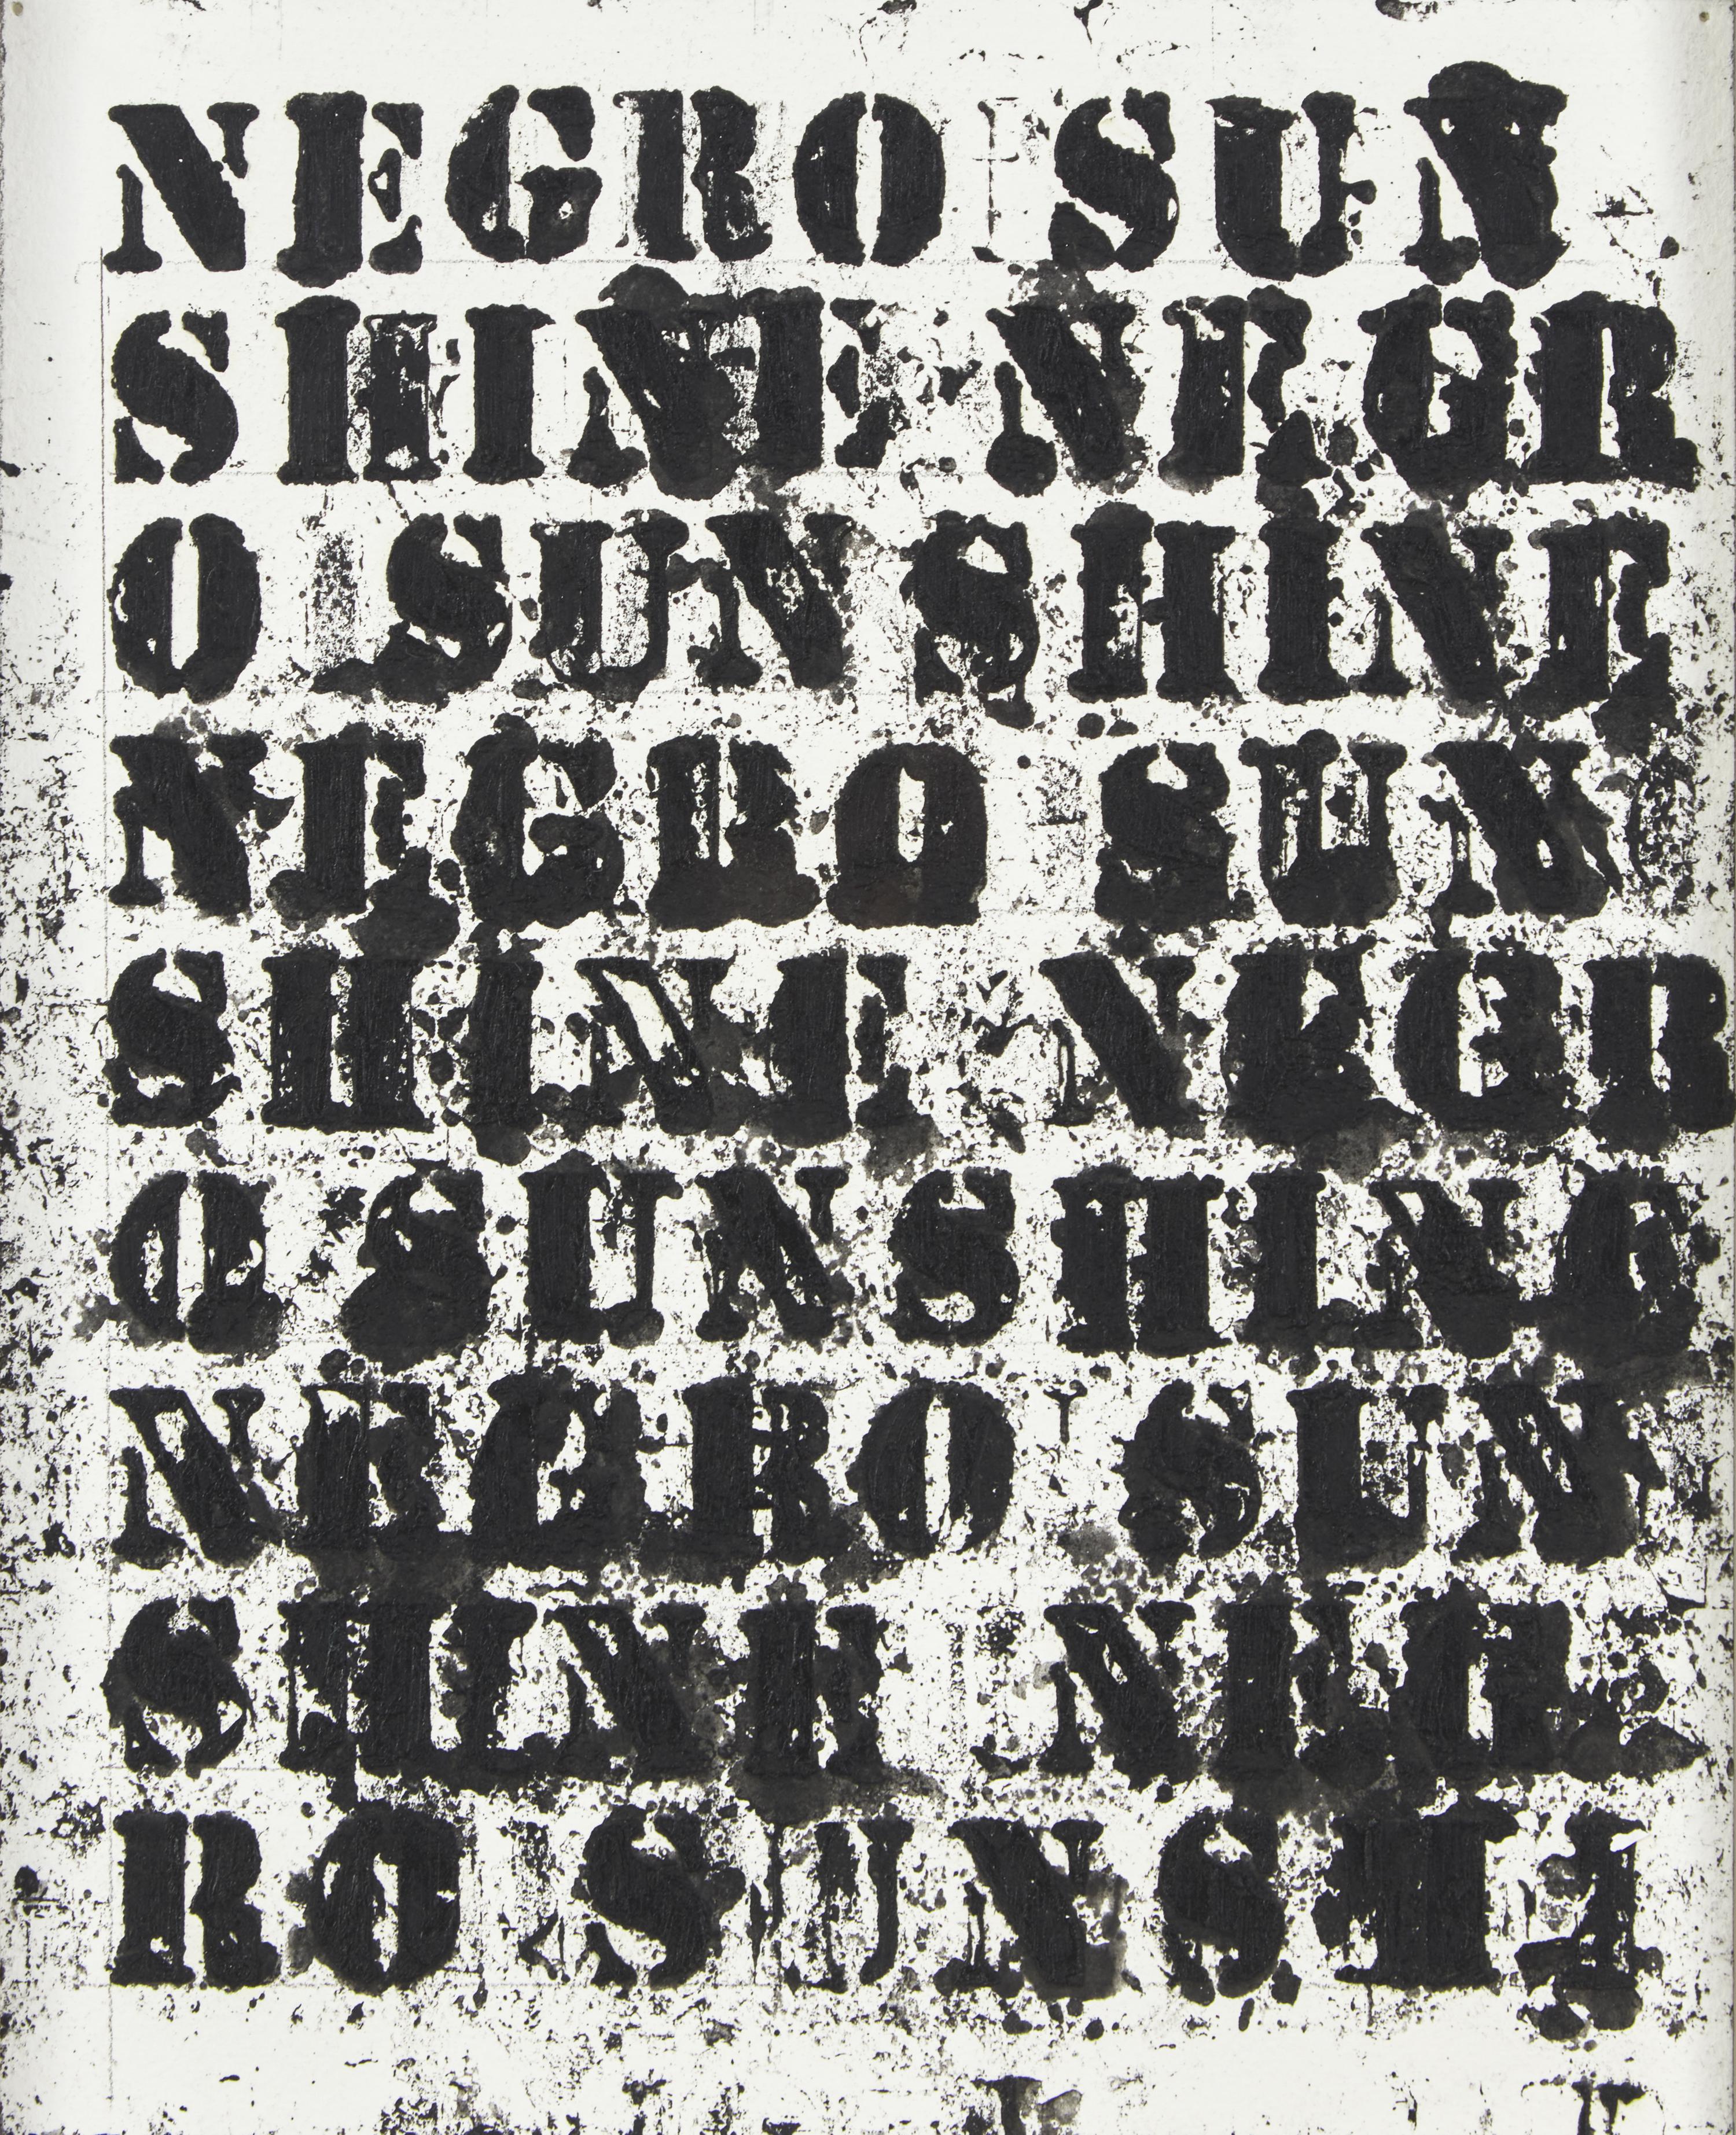 NEGRO SUN
SHINE NEGR
O SUNSHINE
NEGRO SUN
SHINE NEGR
O SUNSHINE
NEGRO SUN
SHINE NEG
RO SUNSHI